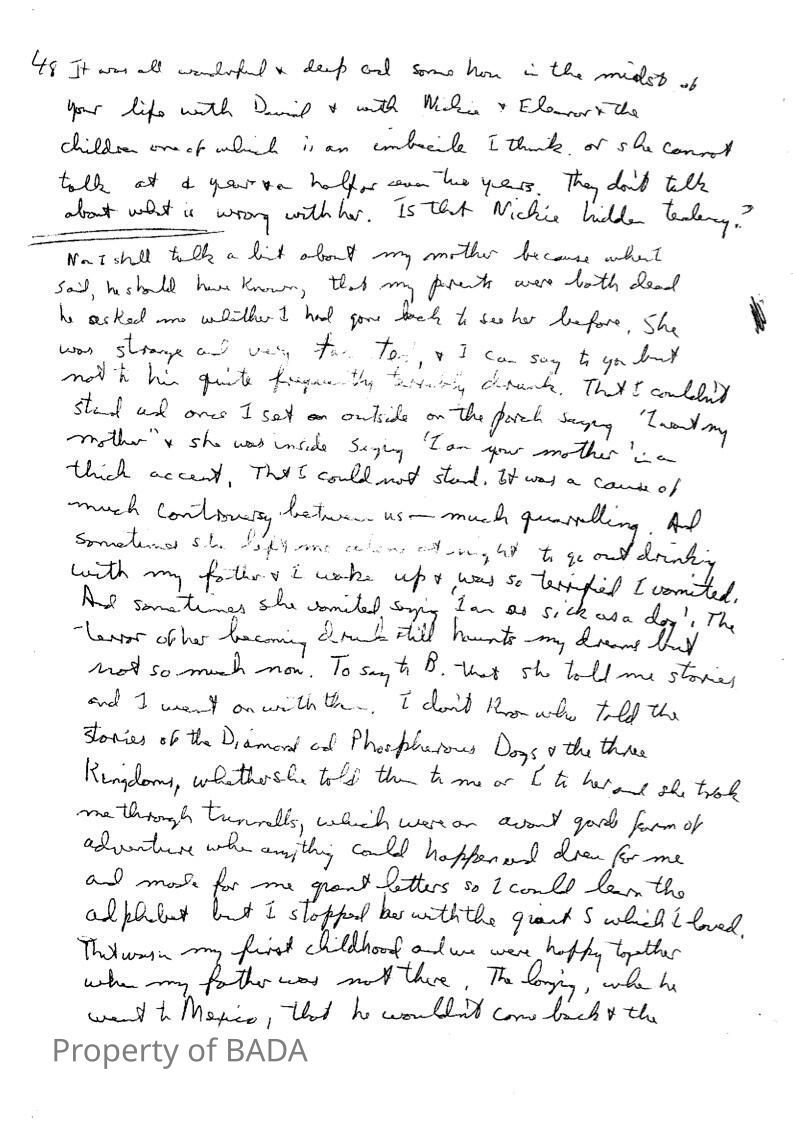 48 It was all wonderful & deep and some how in the midst of
your life with David & with Nickie & Eleanor & the
children one of which is an imbecile I think. or she cannot
talk at a year & a half or even two years. They don't talk
about what is wrong with her. Is that Nickie hidden tendency?
Now I shall talk a bit about my mother because when I
said, he should have known, that my parents were both dead
he asked me whether I had gone back to see her before. She
was strange and very far &, & I can say to you but
not to him quite frequently terribly drunk. That I couldn't
stand and once I sat on outside on the porch saying 'I want my
mother" & she was inside saying 'I am your mother' in a
thick accent. That I could not stand. It was a cause of
much controversy between us — much quarrelling. And
sometimes she left me alone at night to go out drinking
with my father & I woke up & was so terrified I vomited.
And sometimes she vomited saying 'I am as sick as a dog'. The
terror of her becoming drunk still haunts my dreams but
not so much now. To say to B. that she told me stories
and I went on with them. I don't know who told the
stories of the Diamond and Phospherous Dogs & the three
Kingdoms, whether she told them to me or I to her and she took
me through tunnells, which were an avant garde form of
adventure when anything could happen and drew for me
and made for me giant letters so I could learn the
alphabet but I stopped her with the giant S which I loved.
That was in my first childhood and we were happy together
when my father was not there. The longing, when he
went to Mexico, that he wouldn't come back & the
Property of BADA